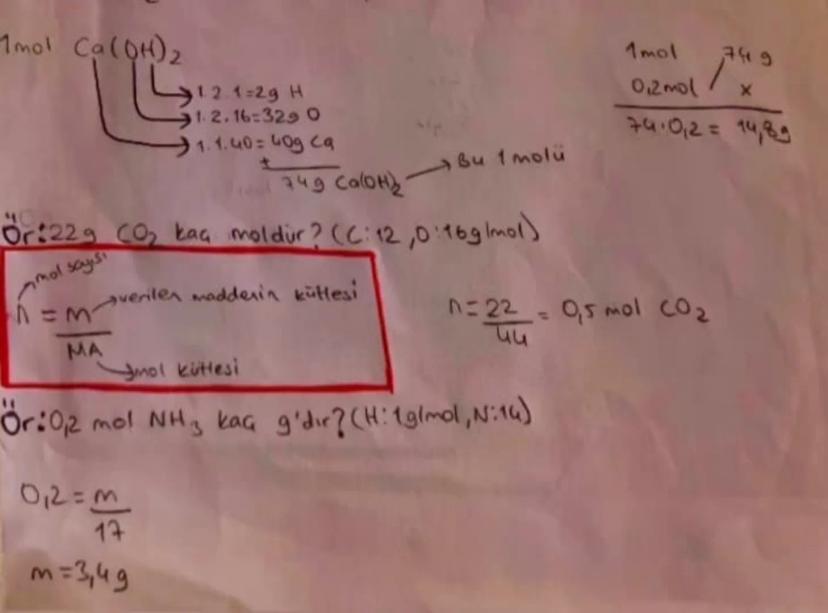 1mol Ca(OH)₂
1.2.1=2g H
1.2.16=32g O
1.1.40=40g Ca
+
74g Ca(OH)₂ → Bu 1 molü
1mol 74g
0,2mol x
74.0,2= 14,8g
Ör:22g CO₂ kaç moldür? (C:12, O:16g/mol)
mol sayısı
n = m → verilen maddenin kütlesi
MA → mol kütlesi
n=22/44 = 0,5 mol CO₂
Ör:0,2 mol NH₃ kaç g'dır? (H:1g/mol, N:14)
0,2=m/17
m=3,4g